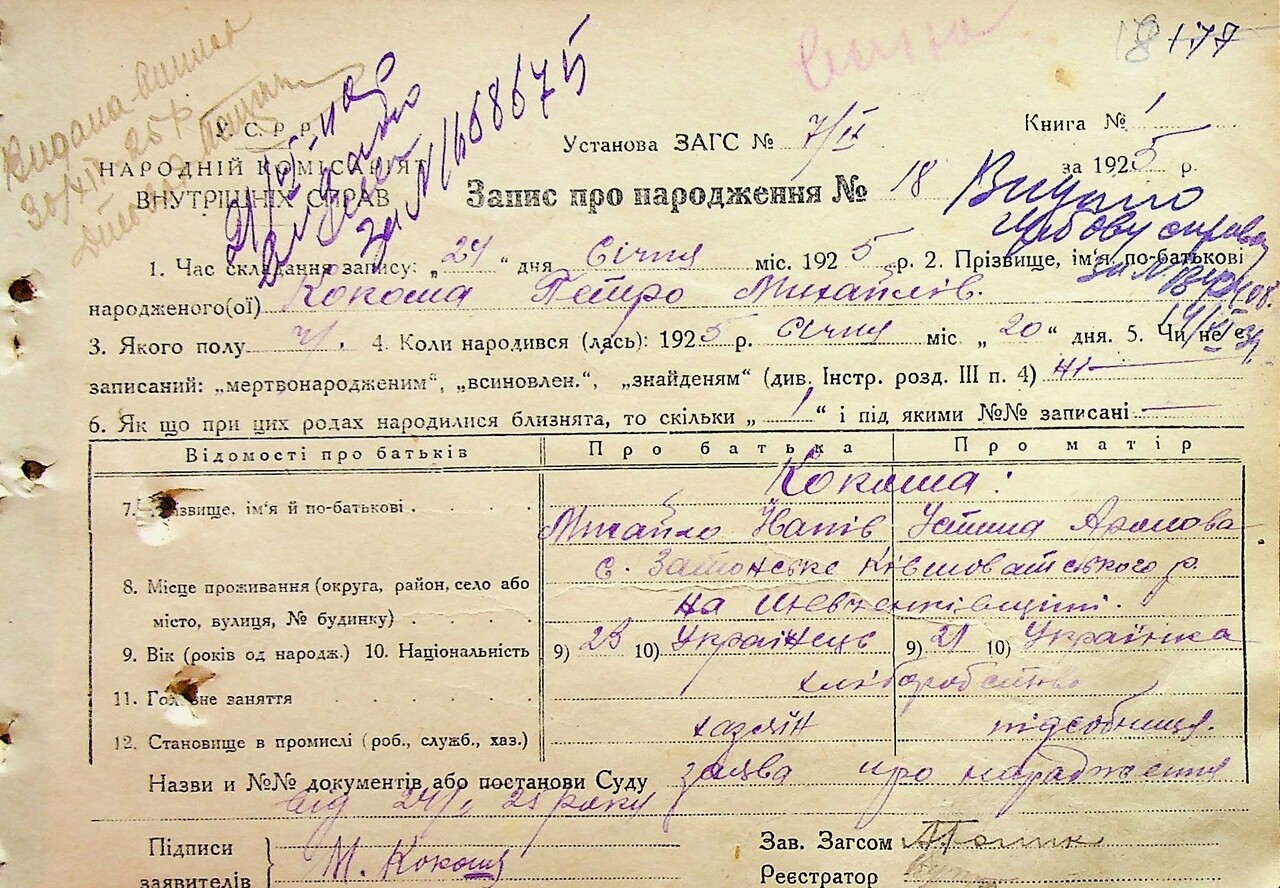 18 177
У. С. Р. Р.
НАРОДНІЙ КОМІСАРІЯТ
ВНУТРІШНІХ СПРАВ
за № 1658675
Установа ЗАГС № 7/ІІ
Книга № 1
за 1925 р.
Запис про народження № 18
Видано
1. Час складання запису: „24“ дня Січня міс. 1925 р. 2. Прізвище, ім'я, по-батькові
народженого(ої) Кокоша Петро Михайлів.
3. Якого полу ч. 4. Коли народився (лась): 1925 р. Січня міс „20“ дня. 5. Чи не є
записаний: „мертвонародженим“, „всиновлен.“, „знайденям“ (див. Інстр. розд. III п. 4) ні —
6. Як що при цих родах народилися близнята, то скільки „1“ і під якими №№ записані —
Відомості про батьків Про батька Про матір
Кокоша:
7. Прізвище, ім'я й по-батькові Михайло Устина
8. Місце проживання (округа, район, село або с. Затонське Ківшоватського р.
місто, вулиця, № будинку) на Шевченківщині.
9. Вік (років од народж.) 10. Національність 9) 23 10) Українець 9) 21 10) Українка
11. Головне заняття хліборобство
12. Становище в промислі (роб., служб., хаз.) хазяїн підсобниця.
Назви и №№ документів або постанови Суду заява про народження
від 24/І 25 року
Підписи
заявителів
М. Кокоша
Зав. Загсом
Реєстратор